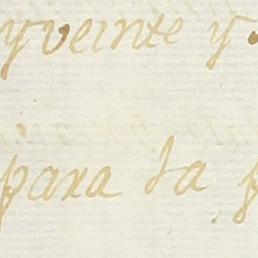 yveinte y
para la